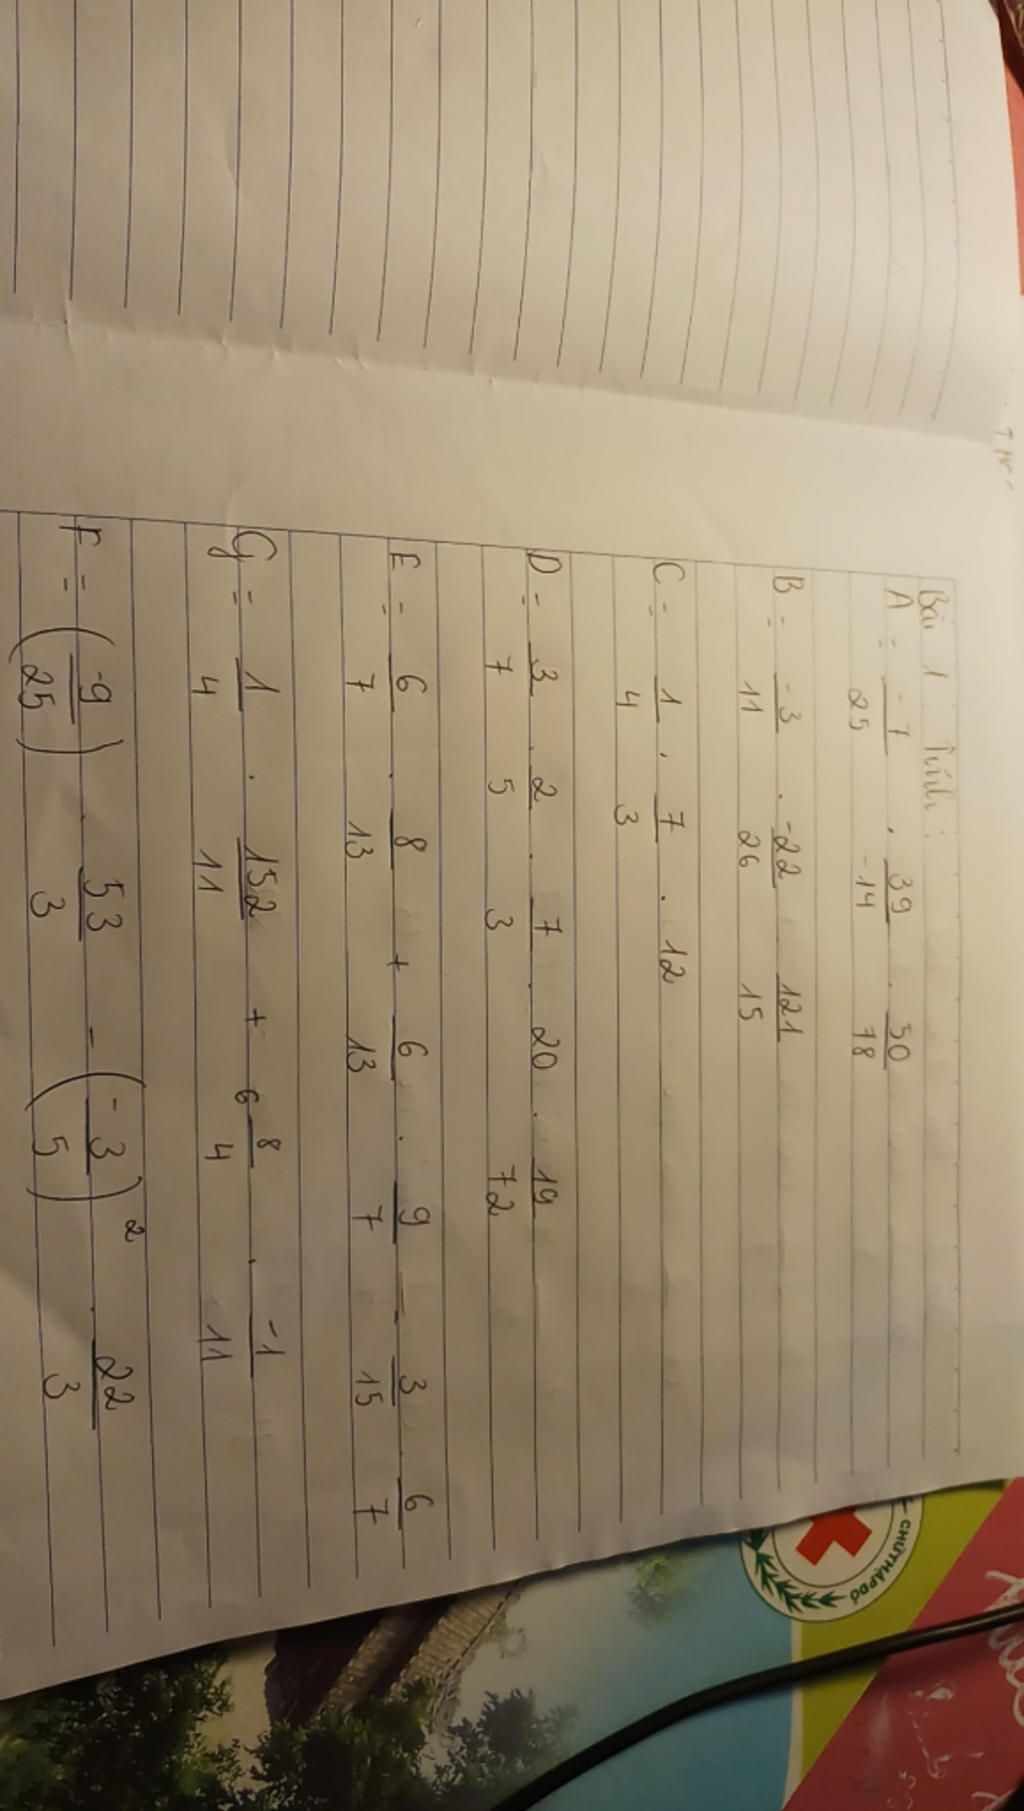 Bài 1 : Tính :
A = -7/25 . 39/-14 . 50/78
B = -3/11 . -22/26 . 121/15
C = 1/4 . 7/3 . 12
D = 3/7 . 2/5 . 7/3 . 20 . 19/72
E = 6/7 . 8/13 + 6/13 . 9/7 - 3/15 . 6/7
G = 1/4 . 152/11 + 6 8/4 . -1/11
F = (-9/25) . 53/3 - (-3/5)² . 22/3
CHỮ THẬP ĐỎ